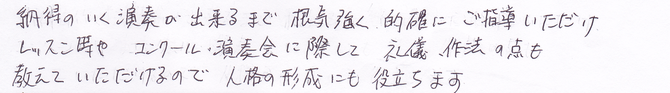 納得のいく演奏が出来るまで 根気強く 的確に ご指導いただけ
レッスン時や コンクール・演奏会に際して 礼儀、作法の点も
教えていただけるので 人格の形成にも 役立ちます